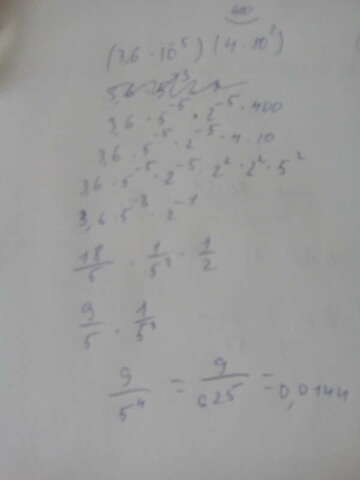 400
(3,6 · 10⁵) (4 · 10²)
3,6 · 5⁻⁵ · 2⁻⁵ · 400
3,6 · 5⁻⁵ · 2⁻⁵ · 4 · 10
3,6 · 5⁻⁵ · 2⁻⁵ · 2² · 2² · 5²
3,6 · 5⁻³ · 2⁻¹
18/5 · 1/5³ · 1/2
9/5 · 1/5³
9/5⁴ = 9/625 = 0,0144